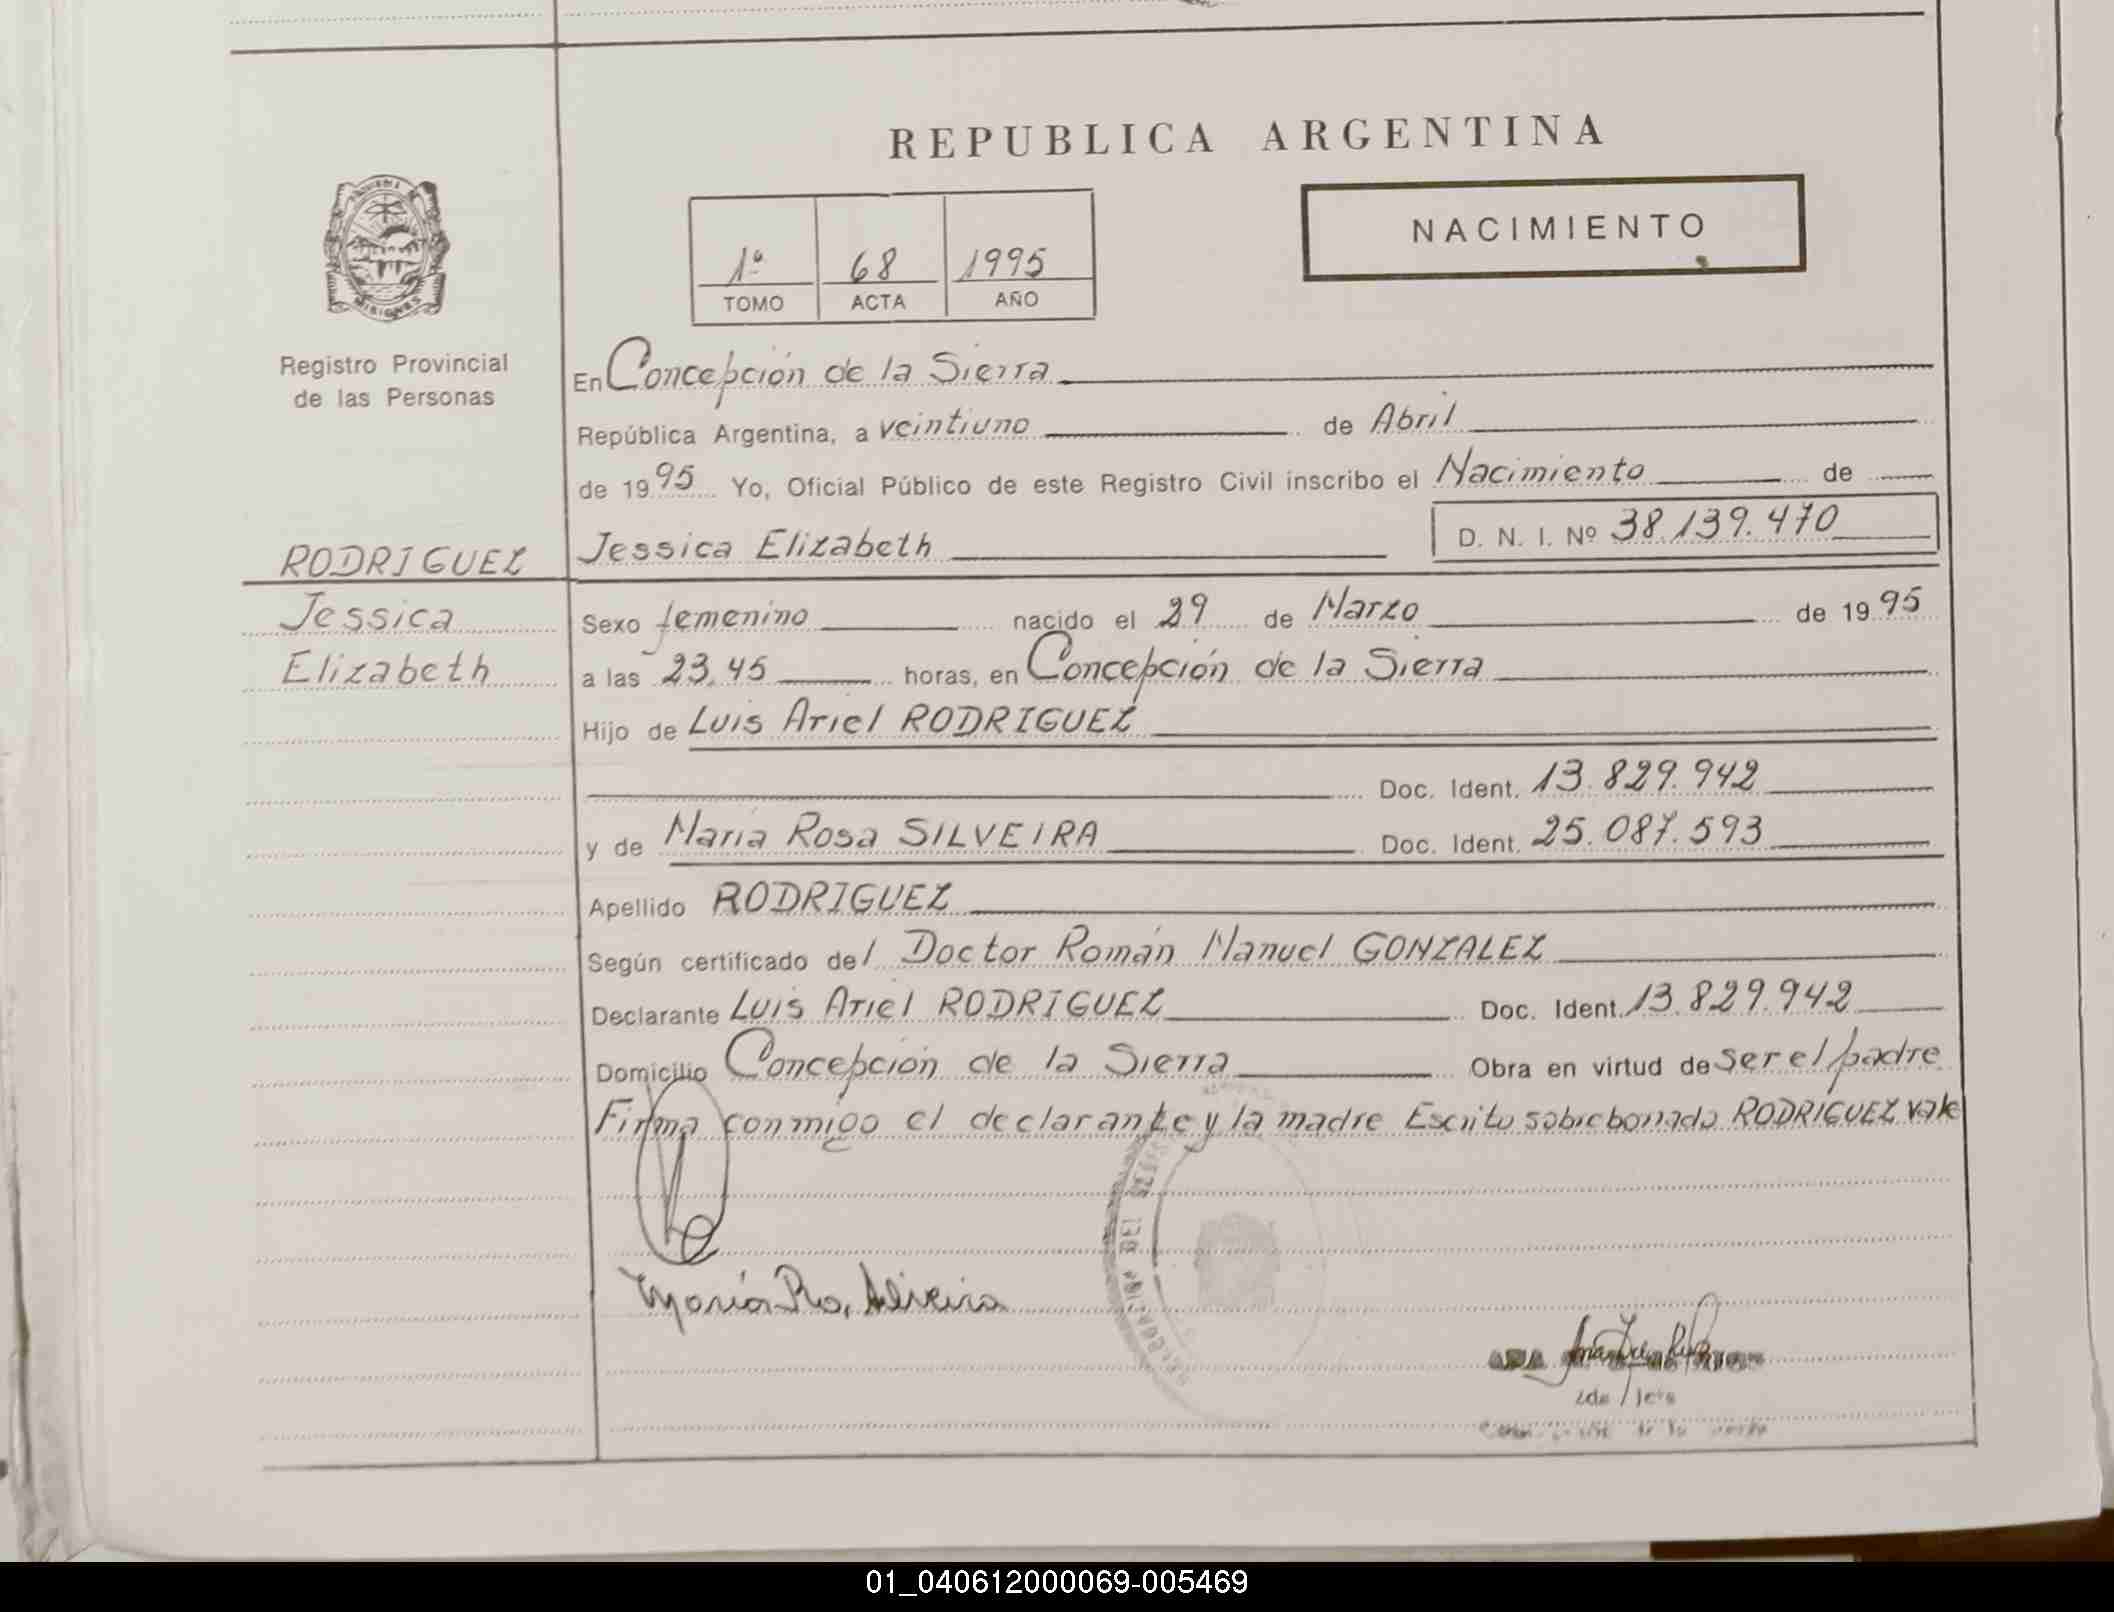 REPUBLICA ARGENTINA
NACIMIENTO
1º 68 1995
TOMO ACTA AÑO
MISIONES
Registro Provincial
de las Personas
En Concepción de la Sierra
República Argentina, a veintiuno de Abril
de 1995 Yo, Oficial Público de este Registro Civil inscribo el Nacimiento de
Jessica Elizabeth D. N. I. Nº 38.139.470
RODRIGUEZ
Jessica
Elizabeth
Sexo femenino nacido el 29 de Marzo de 1995
a las 23,45 horas, en Concepción de la Sierra
Hijo de Luis Ariel RODRIGUEZ
Doc. Ident. 13.829.942
y de María Rosa SILVEIRA Doc. Ident. 25.087.593
Apellido RODRIGUEZ
Según certificado del Doctor Román Manuel GONZALEZ
Declarante Luis Ariel RODRIGUEZ Doc. Ident. 13.829.942
Domicilio Concepción de la Sierra Obra en virtud de ser el padre
Firma conmigo el declarante y la madre Escrito sobreborrado RODRIGUEZ vale
DEL
María Ro, Silveira
01_040612000069-005469